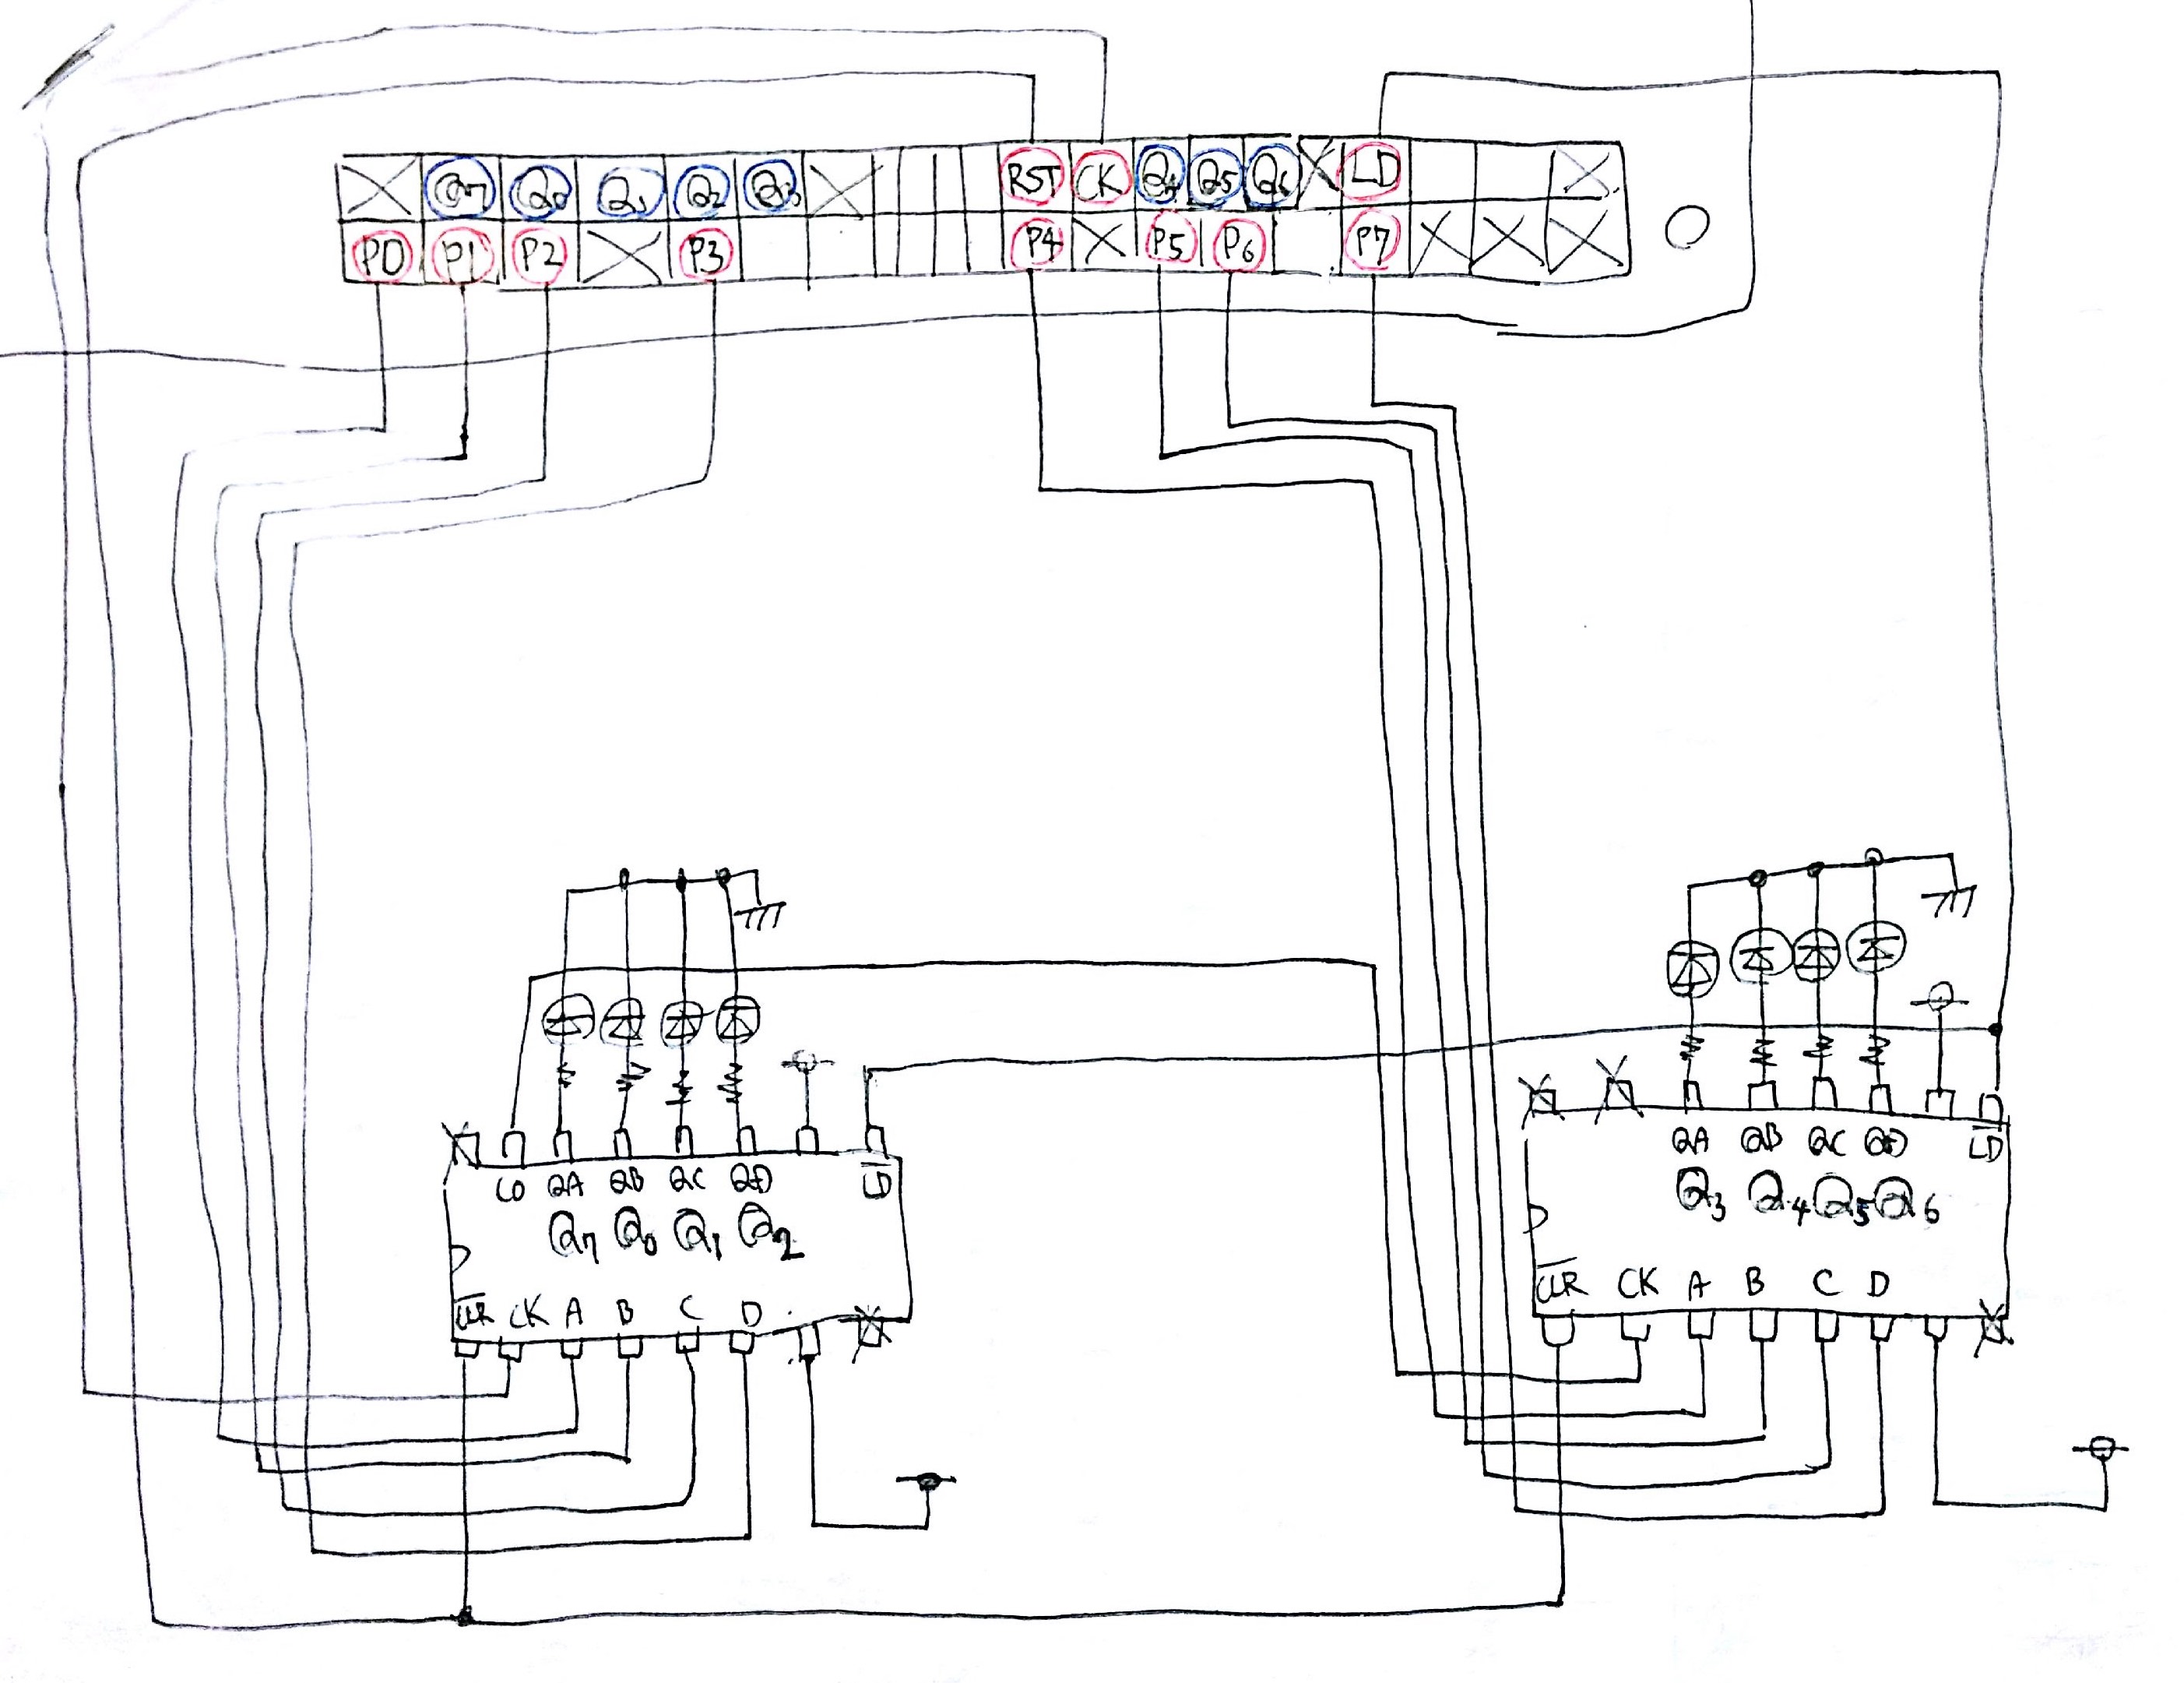 Q7 Q0 Q1 Q2 Q3 RST CK Q4 Q5 Q6 LD
P0 P1 P2 P3 P4 P5 P6 P7
CO QA QB QC QD LD
Q7 Q0 Q1 Q2
CLR CK A B C D
QA QB QC QD LD
Q3 Q4 Q5 Q6
CLR CK A B C D